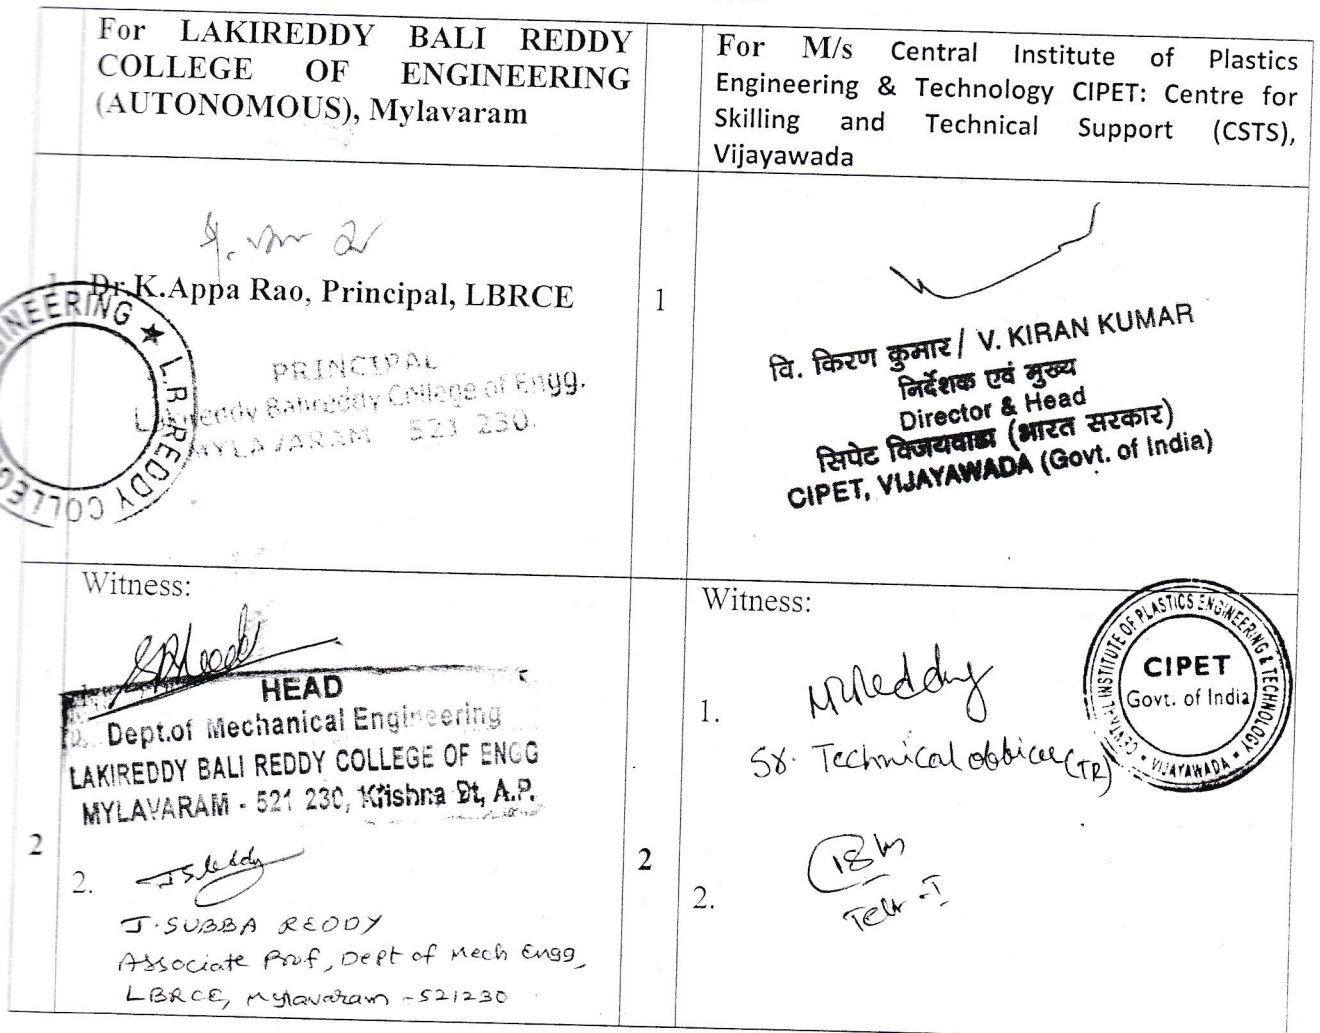 For LAKIREDDY BALI REDDY
COLLEGE OF ENGINEERING
(AUTONOMOUS), Mylavaram
For M/s Central Institute of Plastics
Engineering & Technology CIPET: Centre for
Skilling and Technical Support (CSTS),
Vijayawada
Dr.K.Appa Rao, Principal, LBRCE
PRINCIPAL
Lakireddy Balireddy College of Engg.
MYLAVARAM 521 230.
NEERING ★ L.B. REDDY COLLEGE
1
वि. किरण कुमार / V. KIRAN KUMAR
निर्देशक एवं मुख्य
Director & Head
सिपेट विजयवाडा (भारत सरकार)
CIPET, VIJAYAWADA (Govt. of India)
2
Witness:
HEAD
Dept.of Mechanical Engineering
LAKIREDDY BALI REDDY COLLEGE OF ENGG
MYLAVARAM - 521 230, Krishna Dt, A.P.
2. JSReddy
J.SUBBA REDDY
Associate Prof, Dept of Mech Engg,
LBRCE, Mylavaram - 521230
2
Witness:
1.
Sr. Technical officer (TR)
CENTRAL INSTITUTE OF PLASTICS ENGINEERING & TECHNOLOGY
• VIJAYAWADA •
CIPET
Govt. of India
2.